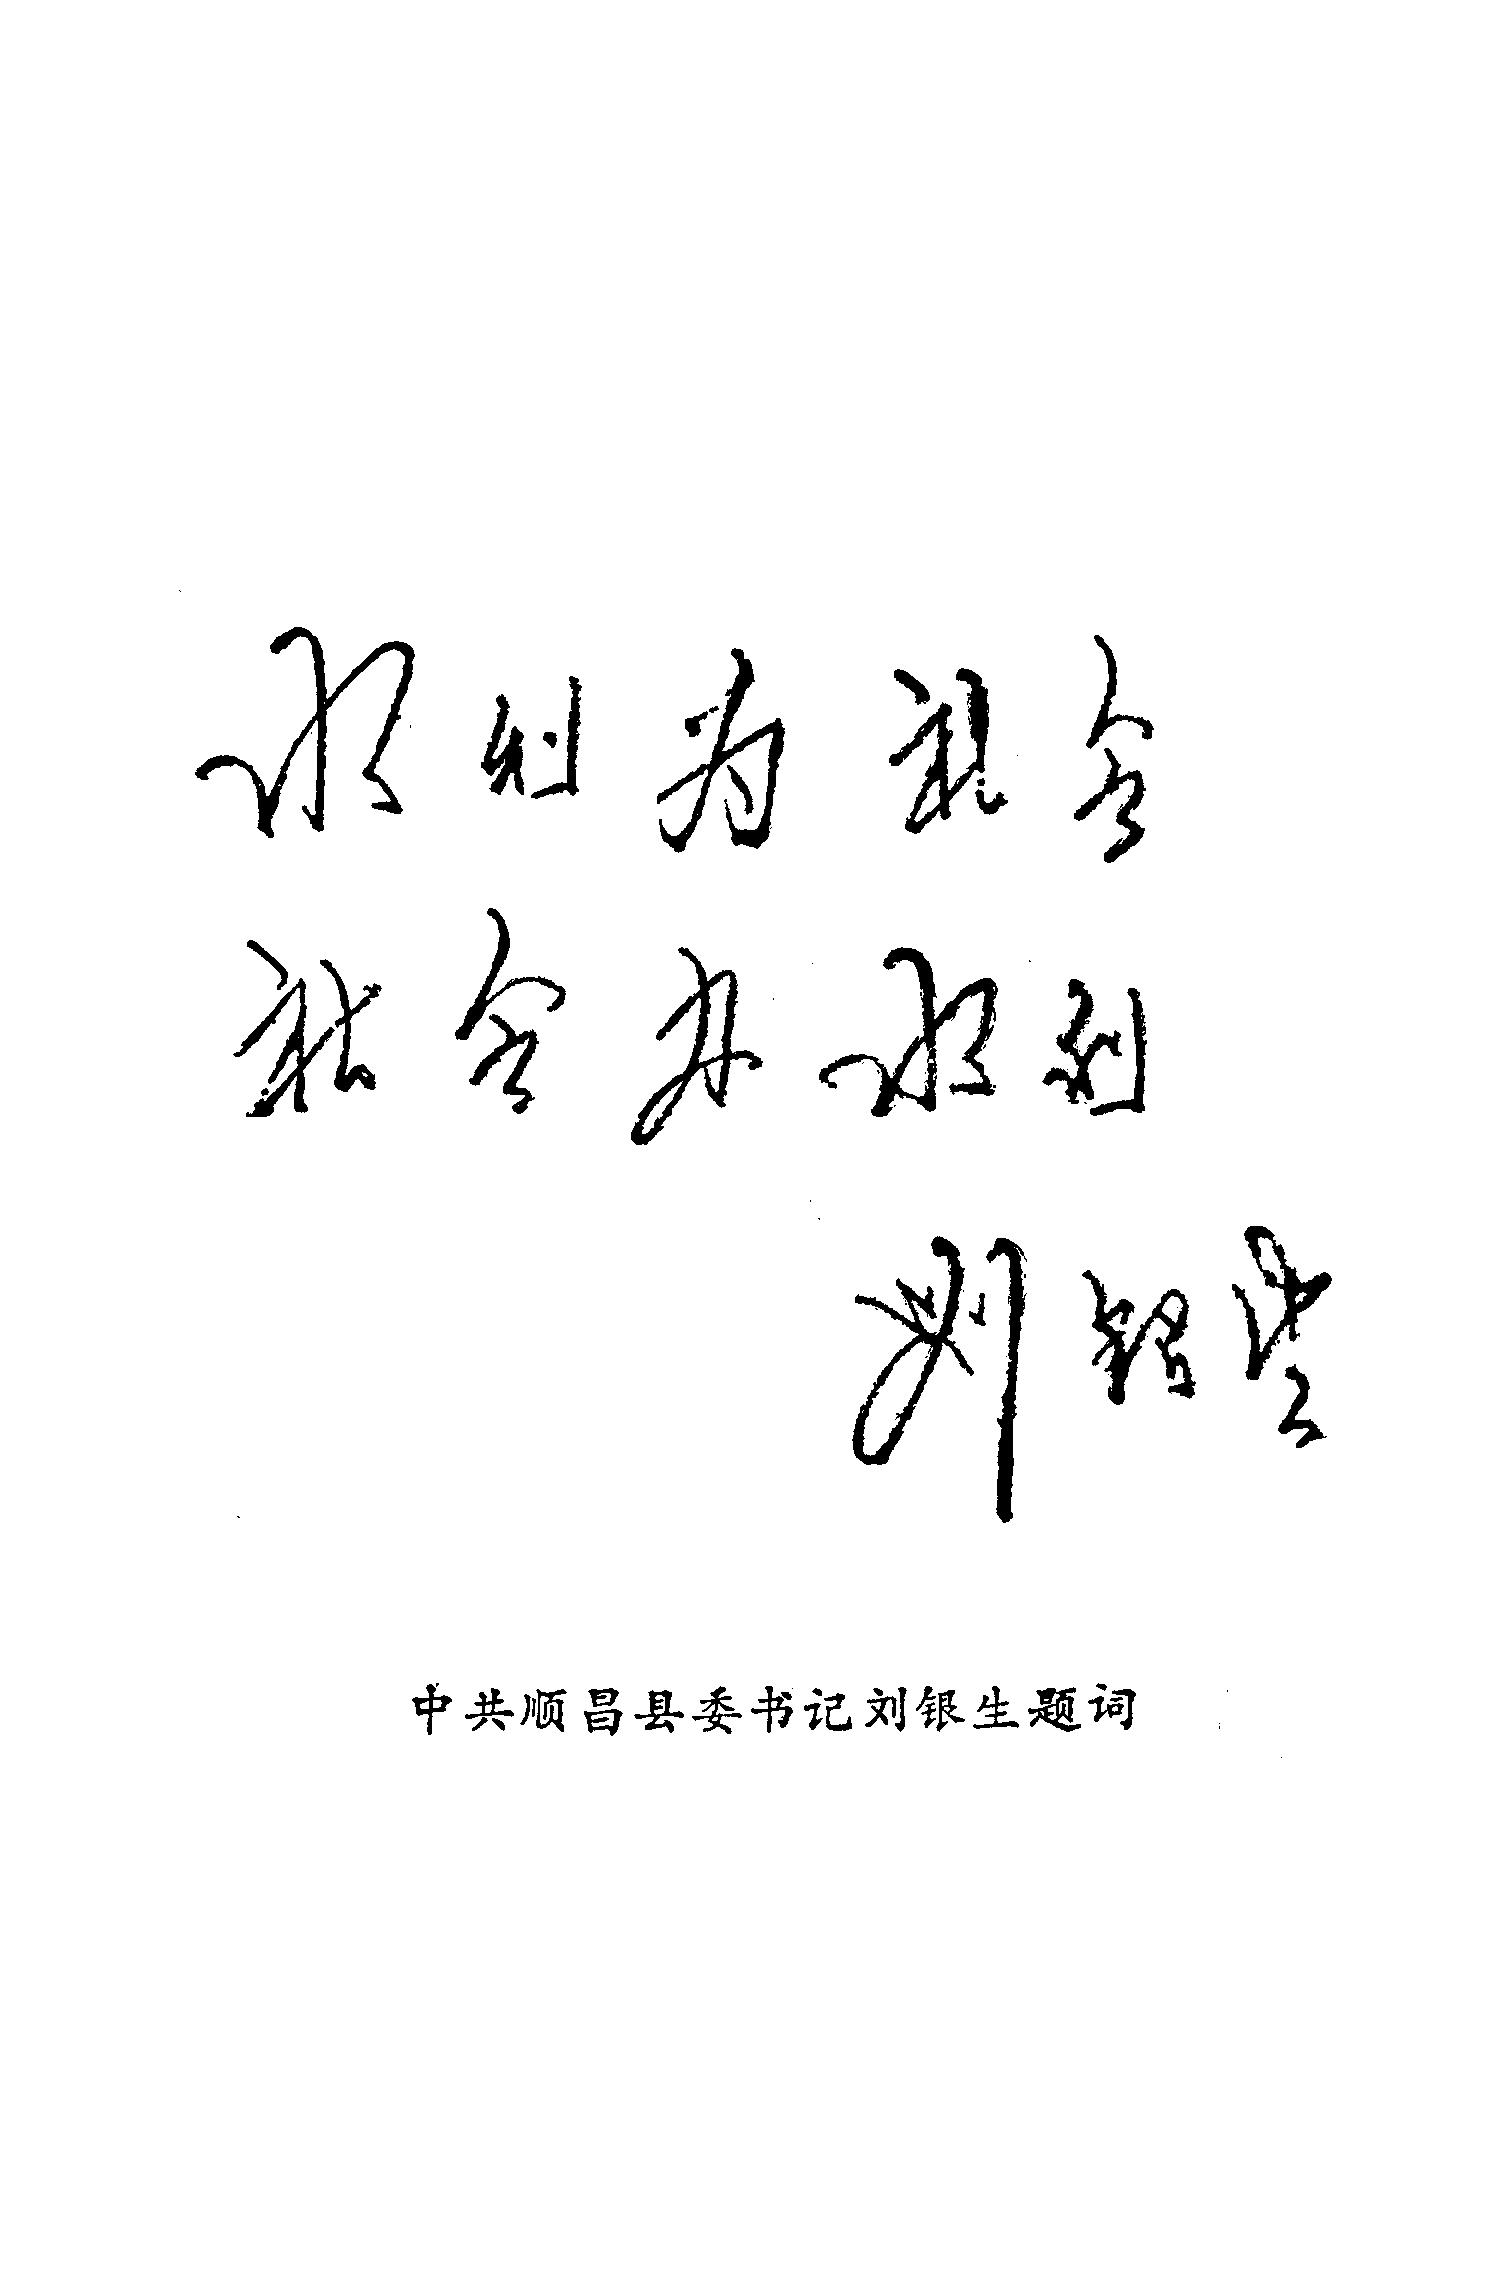 水利为社会
社会办水利
刘银生
中共顺昌县委书记刘银生题词